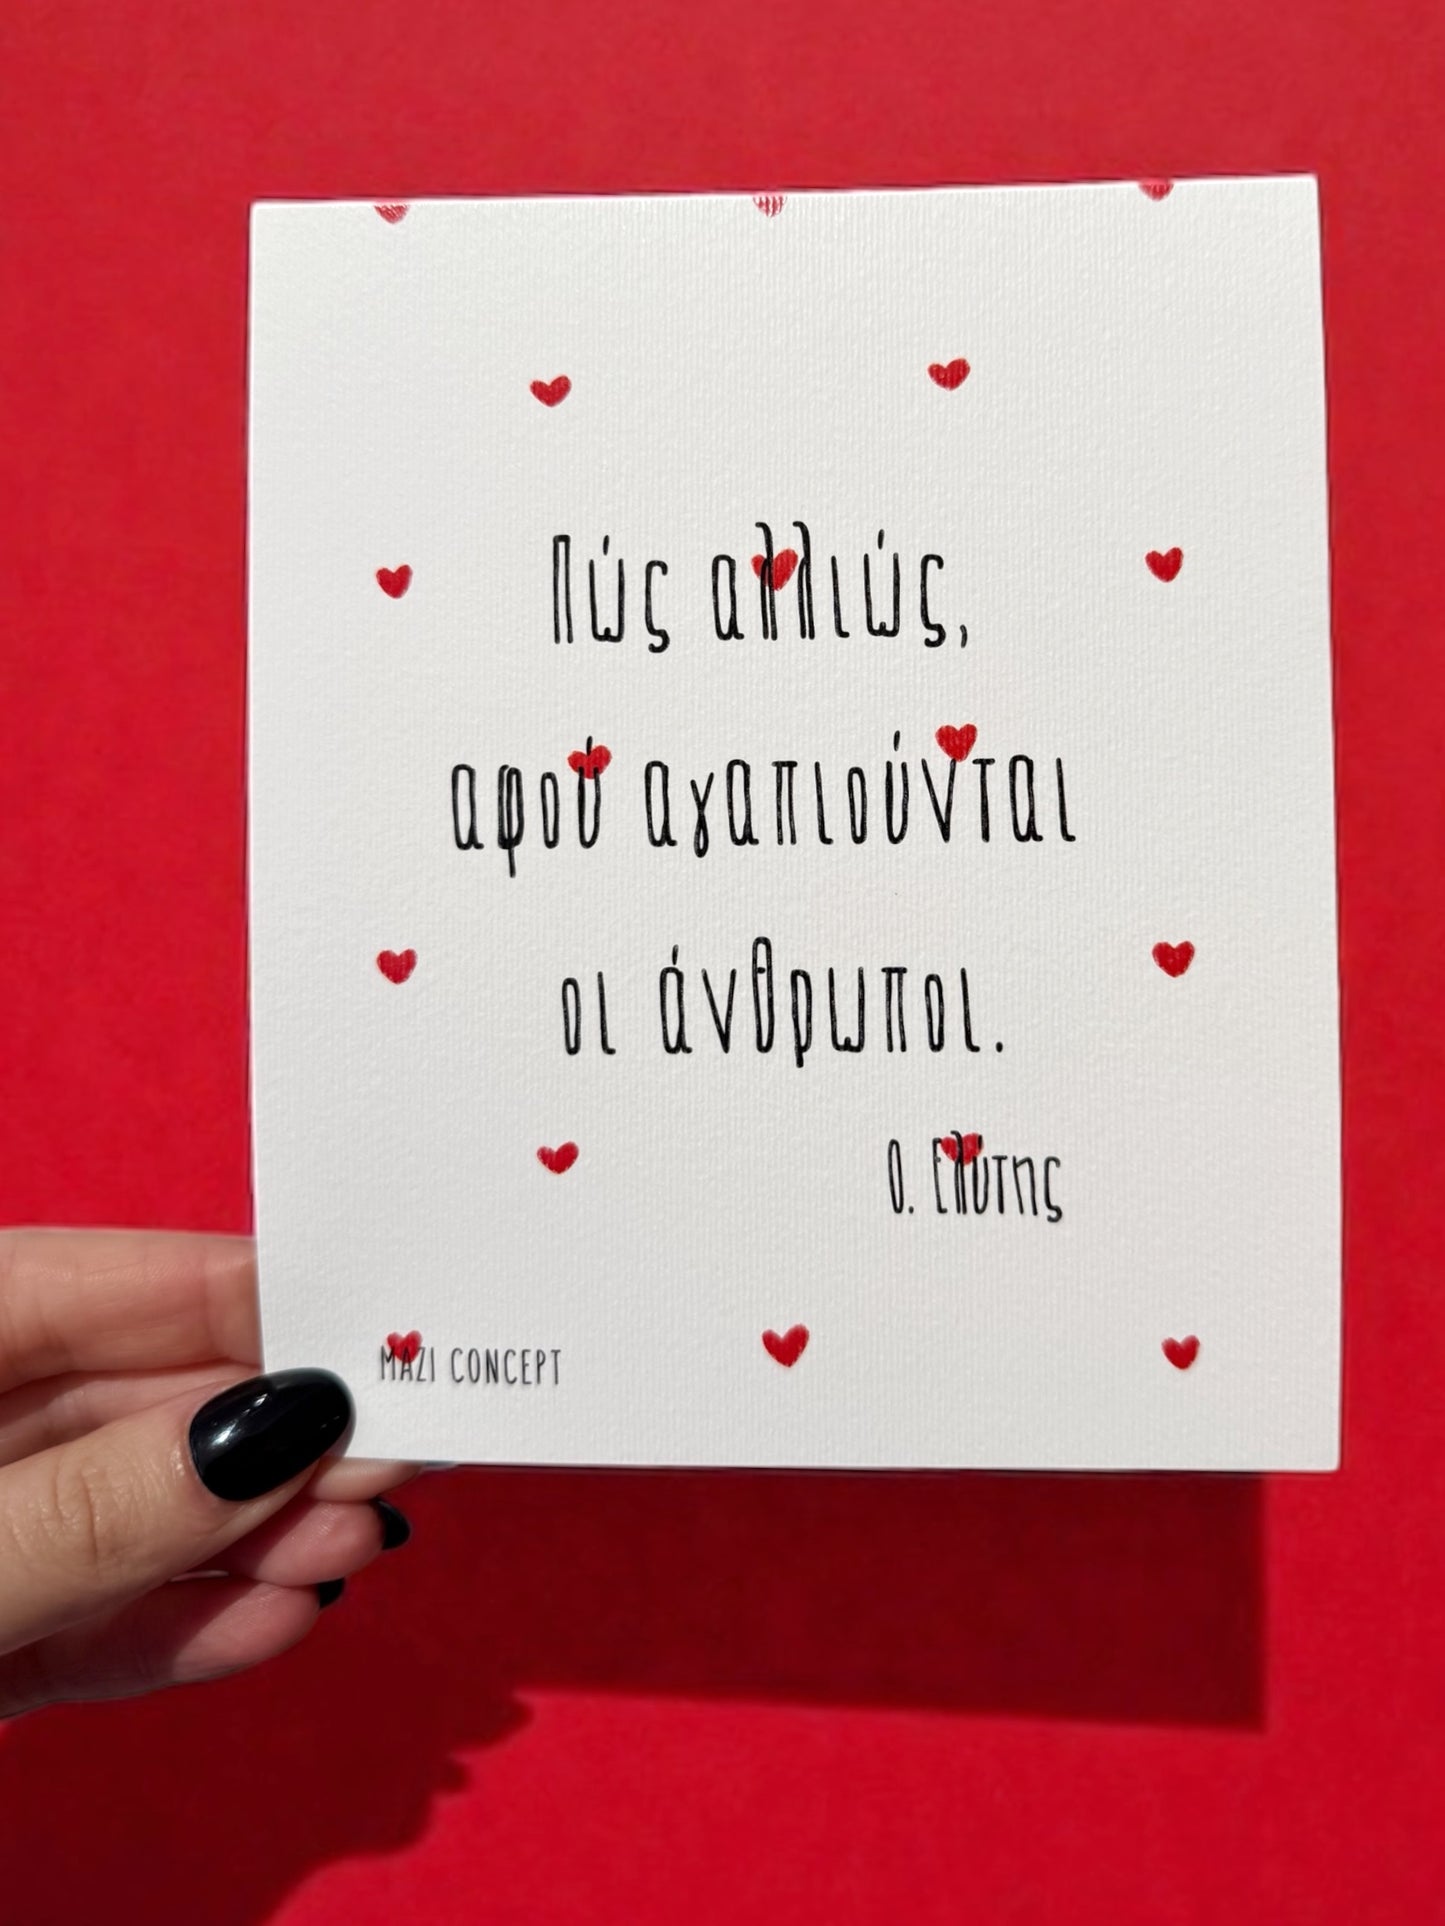 Πώς αλλιώς,
αφού αγαπιούνται
οι άνθρωποι.
Ο. Ελύτης
MAZI CONCEPT